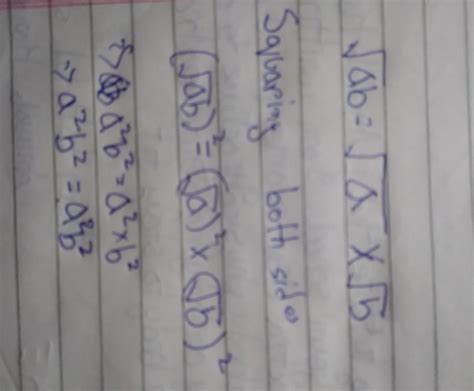 √ab = √a × √b
Squaring both sides
(√ab)² = (√a)² × (√b)²
→ a²b² = a² × b²
→ a²b² = a²b²